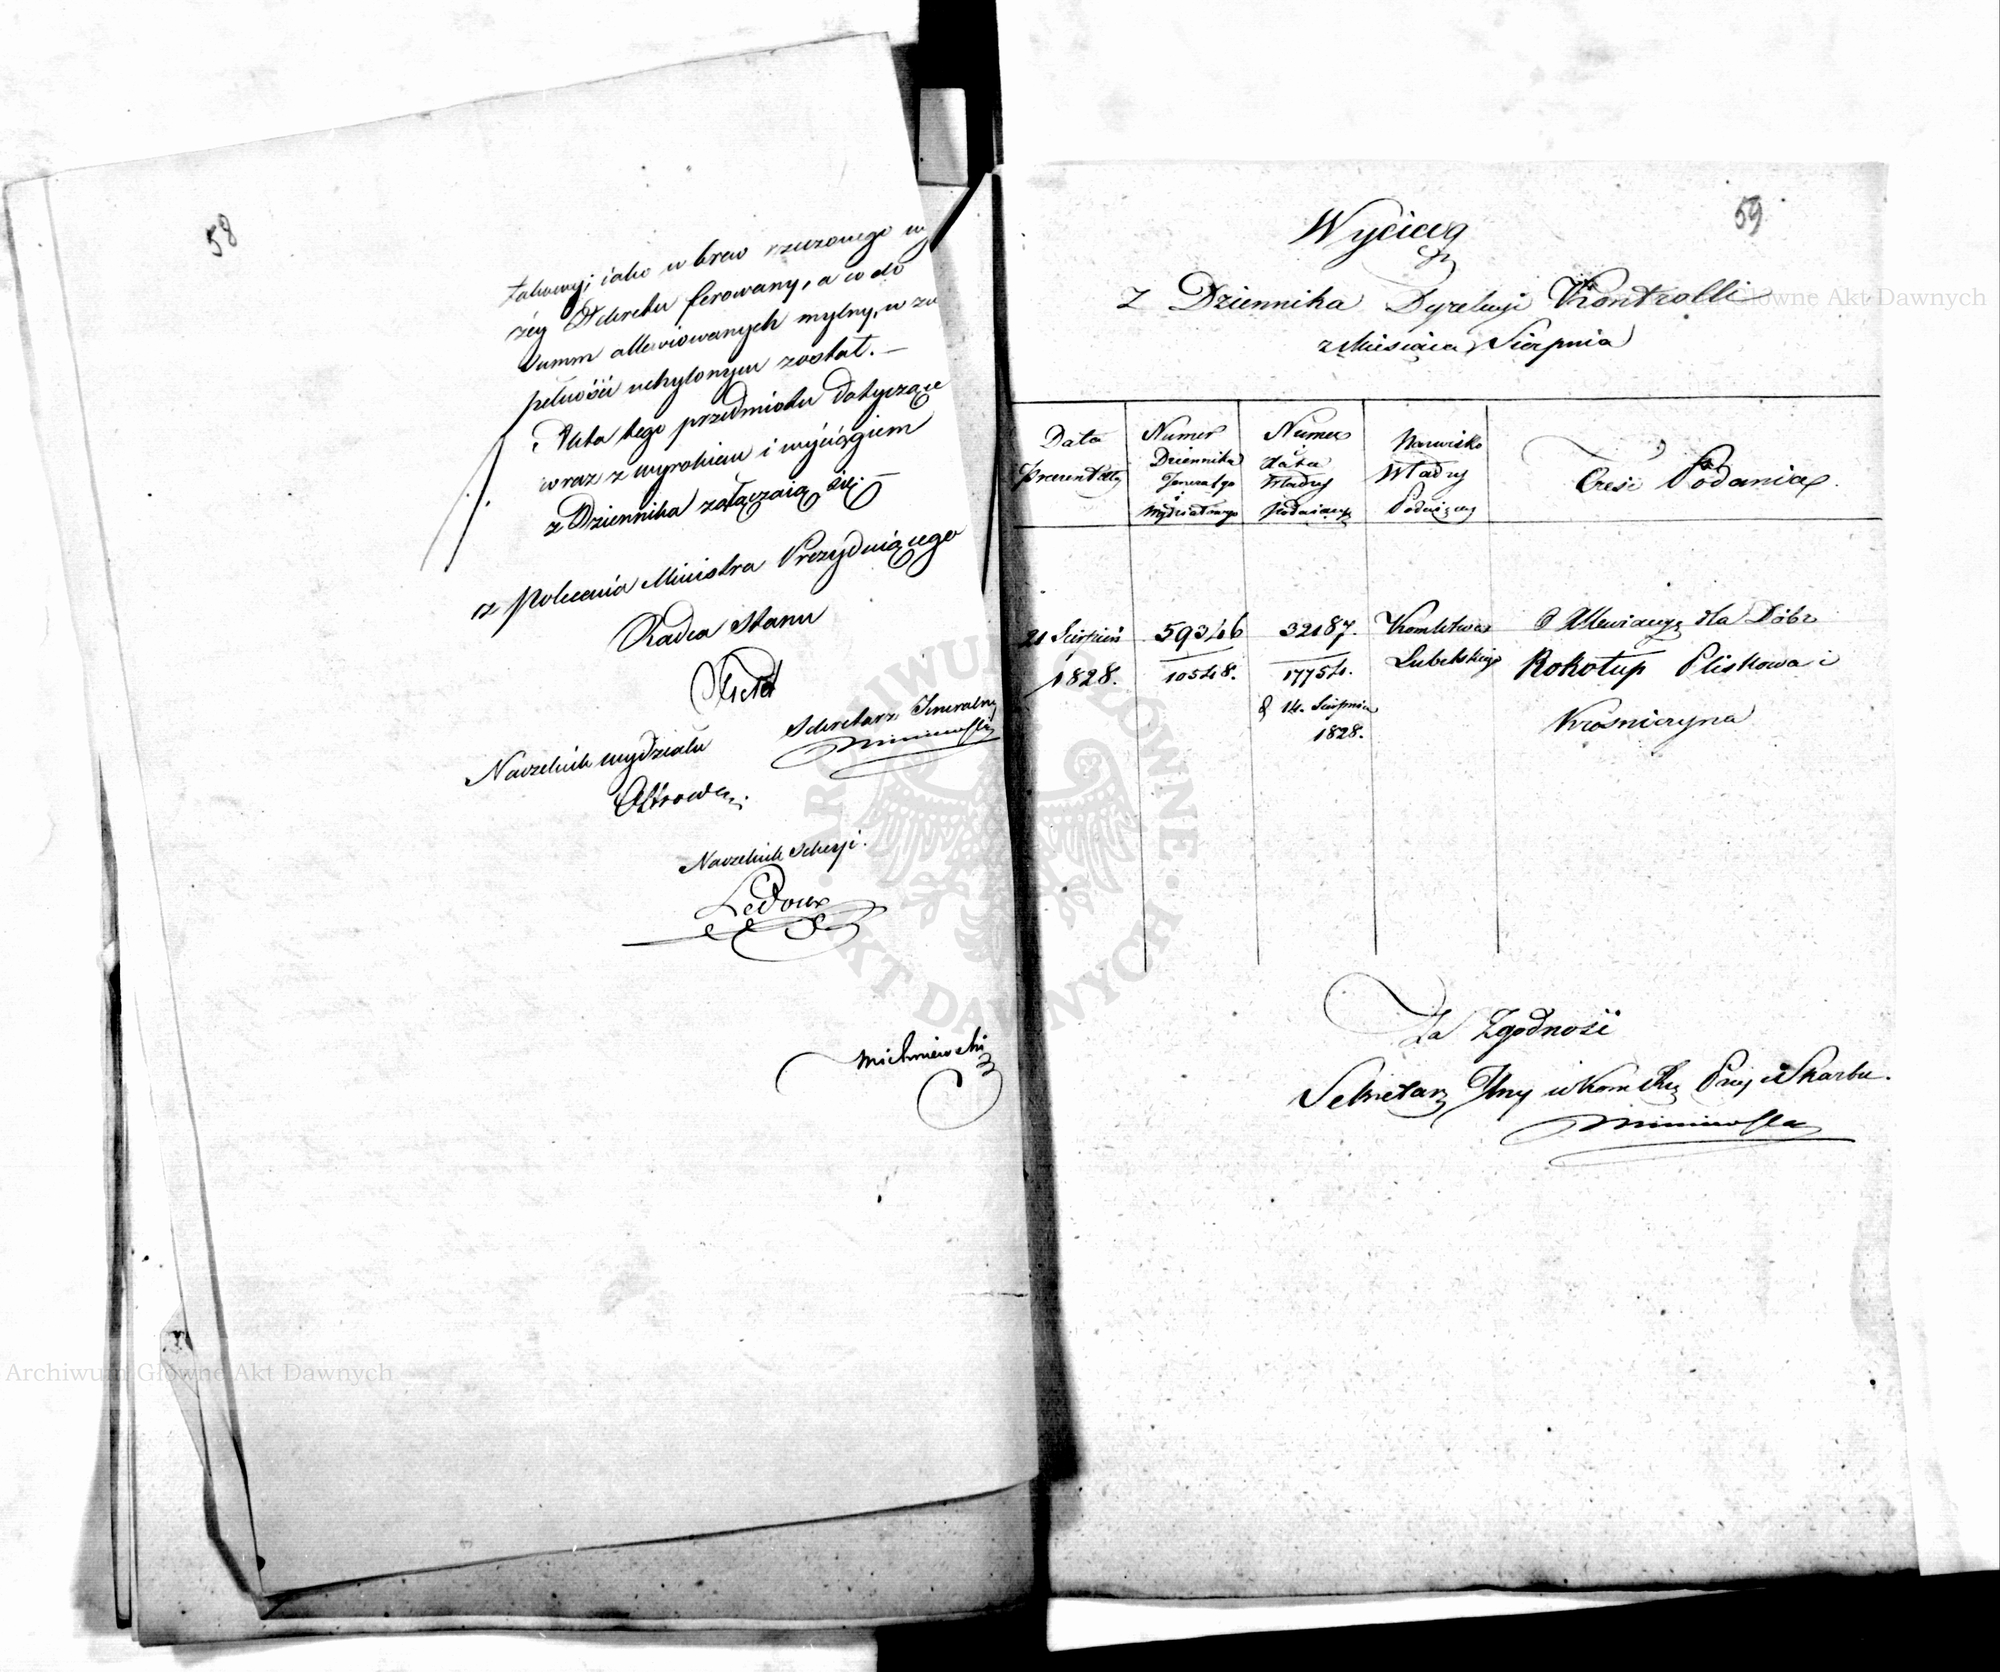 58
takowy, iako w brew rzeczonego wy
żéy Dekretu ferowany, a co do
Summ allewiowanych mylny, w zu
pełności uchylonym został. —
Akta tego przedmiotu dotyczące
wraz z wyrokiem i wyciągiem
z Dziennika załączaią się. —
z Polecenia Ministra Prezyduiącego
Radca Stanu
Sekretarz Jeneralny
Naczelnik wydziału
Naczelnik Sekcyi.
Ledoux
Michniewski
59
Wyciąg
z Dziennika Dyrekcyi Kontrolli
z Miesiąca Sierpnia
Data
Prezentaty
Numer
Dziennika
Jeneralgo
i
Wydziałowego
Numer
i Data
Władzy
Podaiącey
Nazwisko
Władzy
Podaiącey
Treść Podania.
21 Sierpień
1828.
59346
10548.
32187.
17754.
d 14. Sierpnia
1828.
Lubelskiego
O Allewiacyą dla Dóbr
Rokołup Pliskowa i
Kraśniczyna
Za Zgodność
Sekretarz Jlny w Kom Rz Przy i Skarbu.
Archiwum Główne Akt Dawnych
Archiwum Główne Akt Dawnych
ARCHIWUM GŁÓWNE · AKT DAWNYCH ·